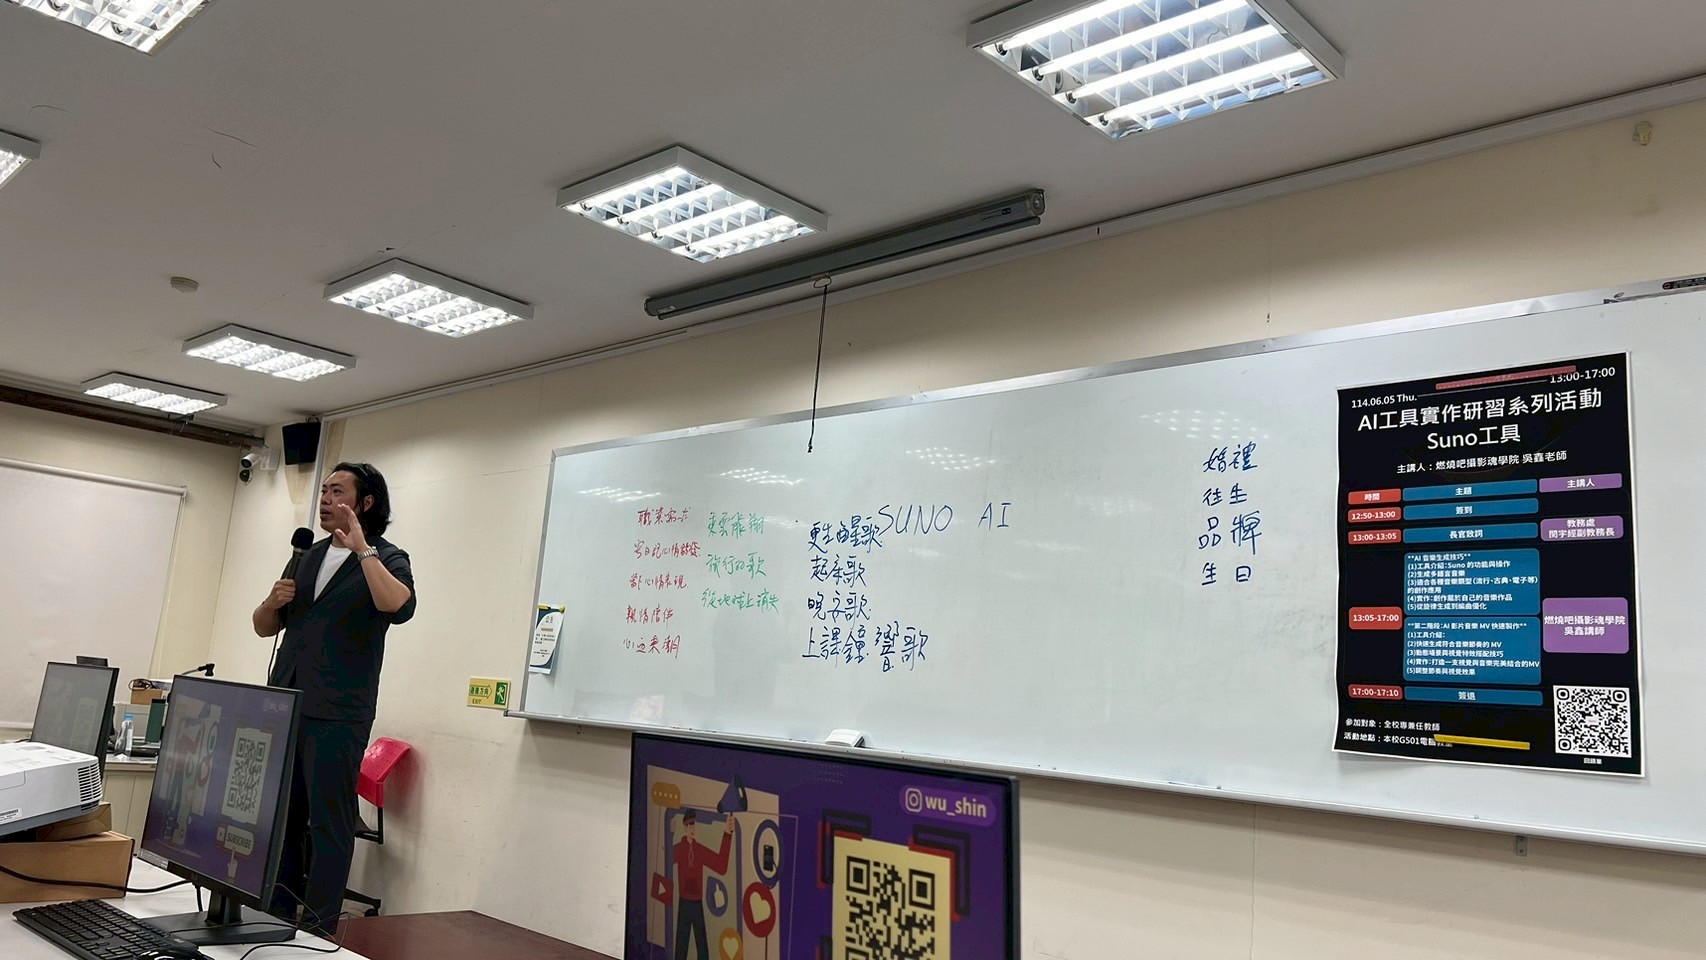 SUNO AI
旅行的歌
起床歌
晚安歌
上課鐘響歌
婚禮
往生
品牌
生日
13:00-17:00
114.06.05 Thu.
AI工具實作研習系列活動
Suno工具
主講人：燃燒吧攝影魂學院 吳鑫老師
時間 主題 主講人
12:50-13:00 簽到
13:00-13:05 長官致詞
教務處
閔宇經副教務長
13:05-17:00
**AI 音樂生成技巧**
(1)工具介紹:Suno 的功能與操作
(2)生成多語言音樂
(3)適合各種音樂類型 (流行、古典、電子等)
的創作應用
(4)實作: 創作屬於自己的音樂作品
(5)從旋律生成到編曲優化
**第二階段: AI 影片音樂 MV 快速製作**
(1)工具介紹:
(2)快速生成符合音樂節奏的 MV
(3)動態場景與視覺特效搭配技巧
(4)實作: 打造一支視覺與音樂完美結合的MV
(5)調整節奏與視覺效果
燃燒吧攝影魂學院
吳鑫講師
17:00-17:10 簽退
參加對象：全校專兼任教師
活動地點：本校G501電腦教室
wu_shin
SUBSCRIBE
wu_shin